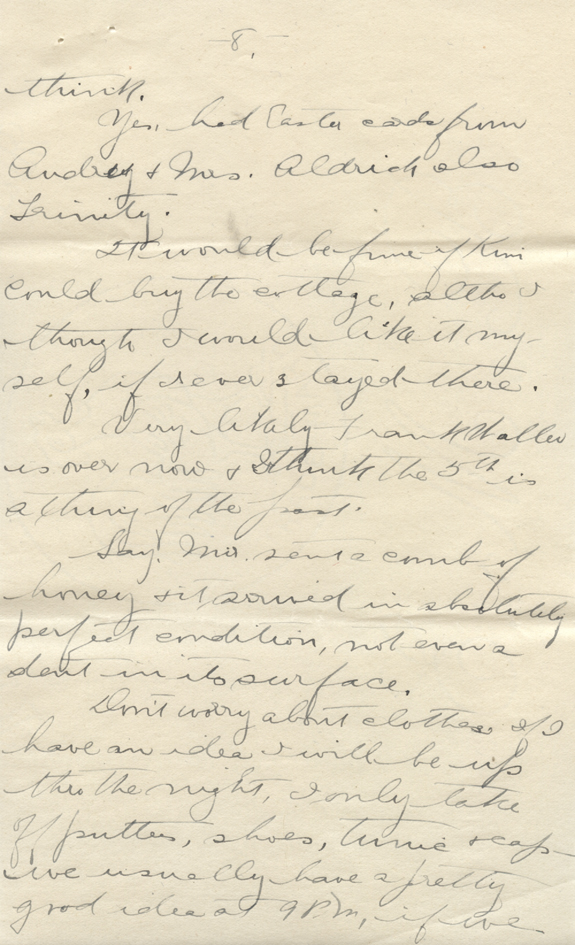 -8.-
think.
Yes, had Easter cards from
Audrey & Mrs. Aldrich also
Trinity.
It would be fine if Kim
could buy the cottage, altho I
though I would like it my-
self, if I ever stayed there.
Very likely Frank Waller
is over now & I think the 5th is
a thing of the past.
Say! Mir. sent a comb of
honey & it arrived in absolutely
perfect condition, not even a
dent in its surface.
Don't worry about clothes, if I
have an idea I will be up
thru the night, I only take
off puttees, shoes, tunic & cap-
we usually have a pretty
good idea at 9 P.M., if we